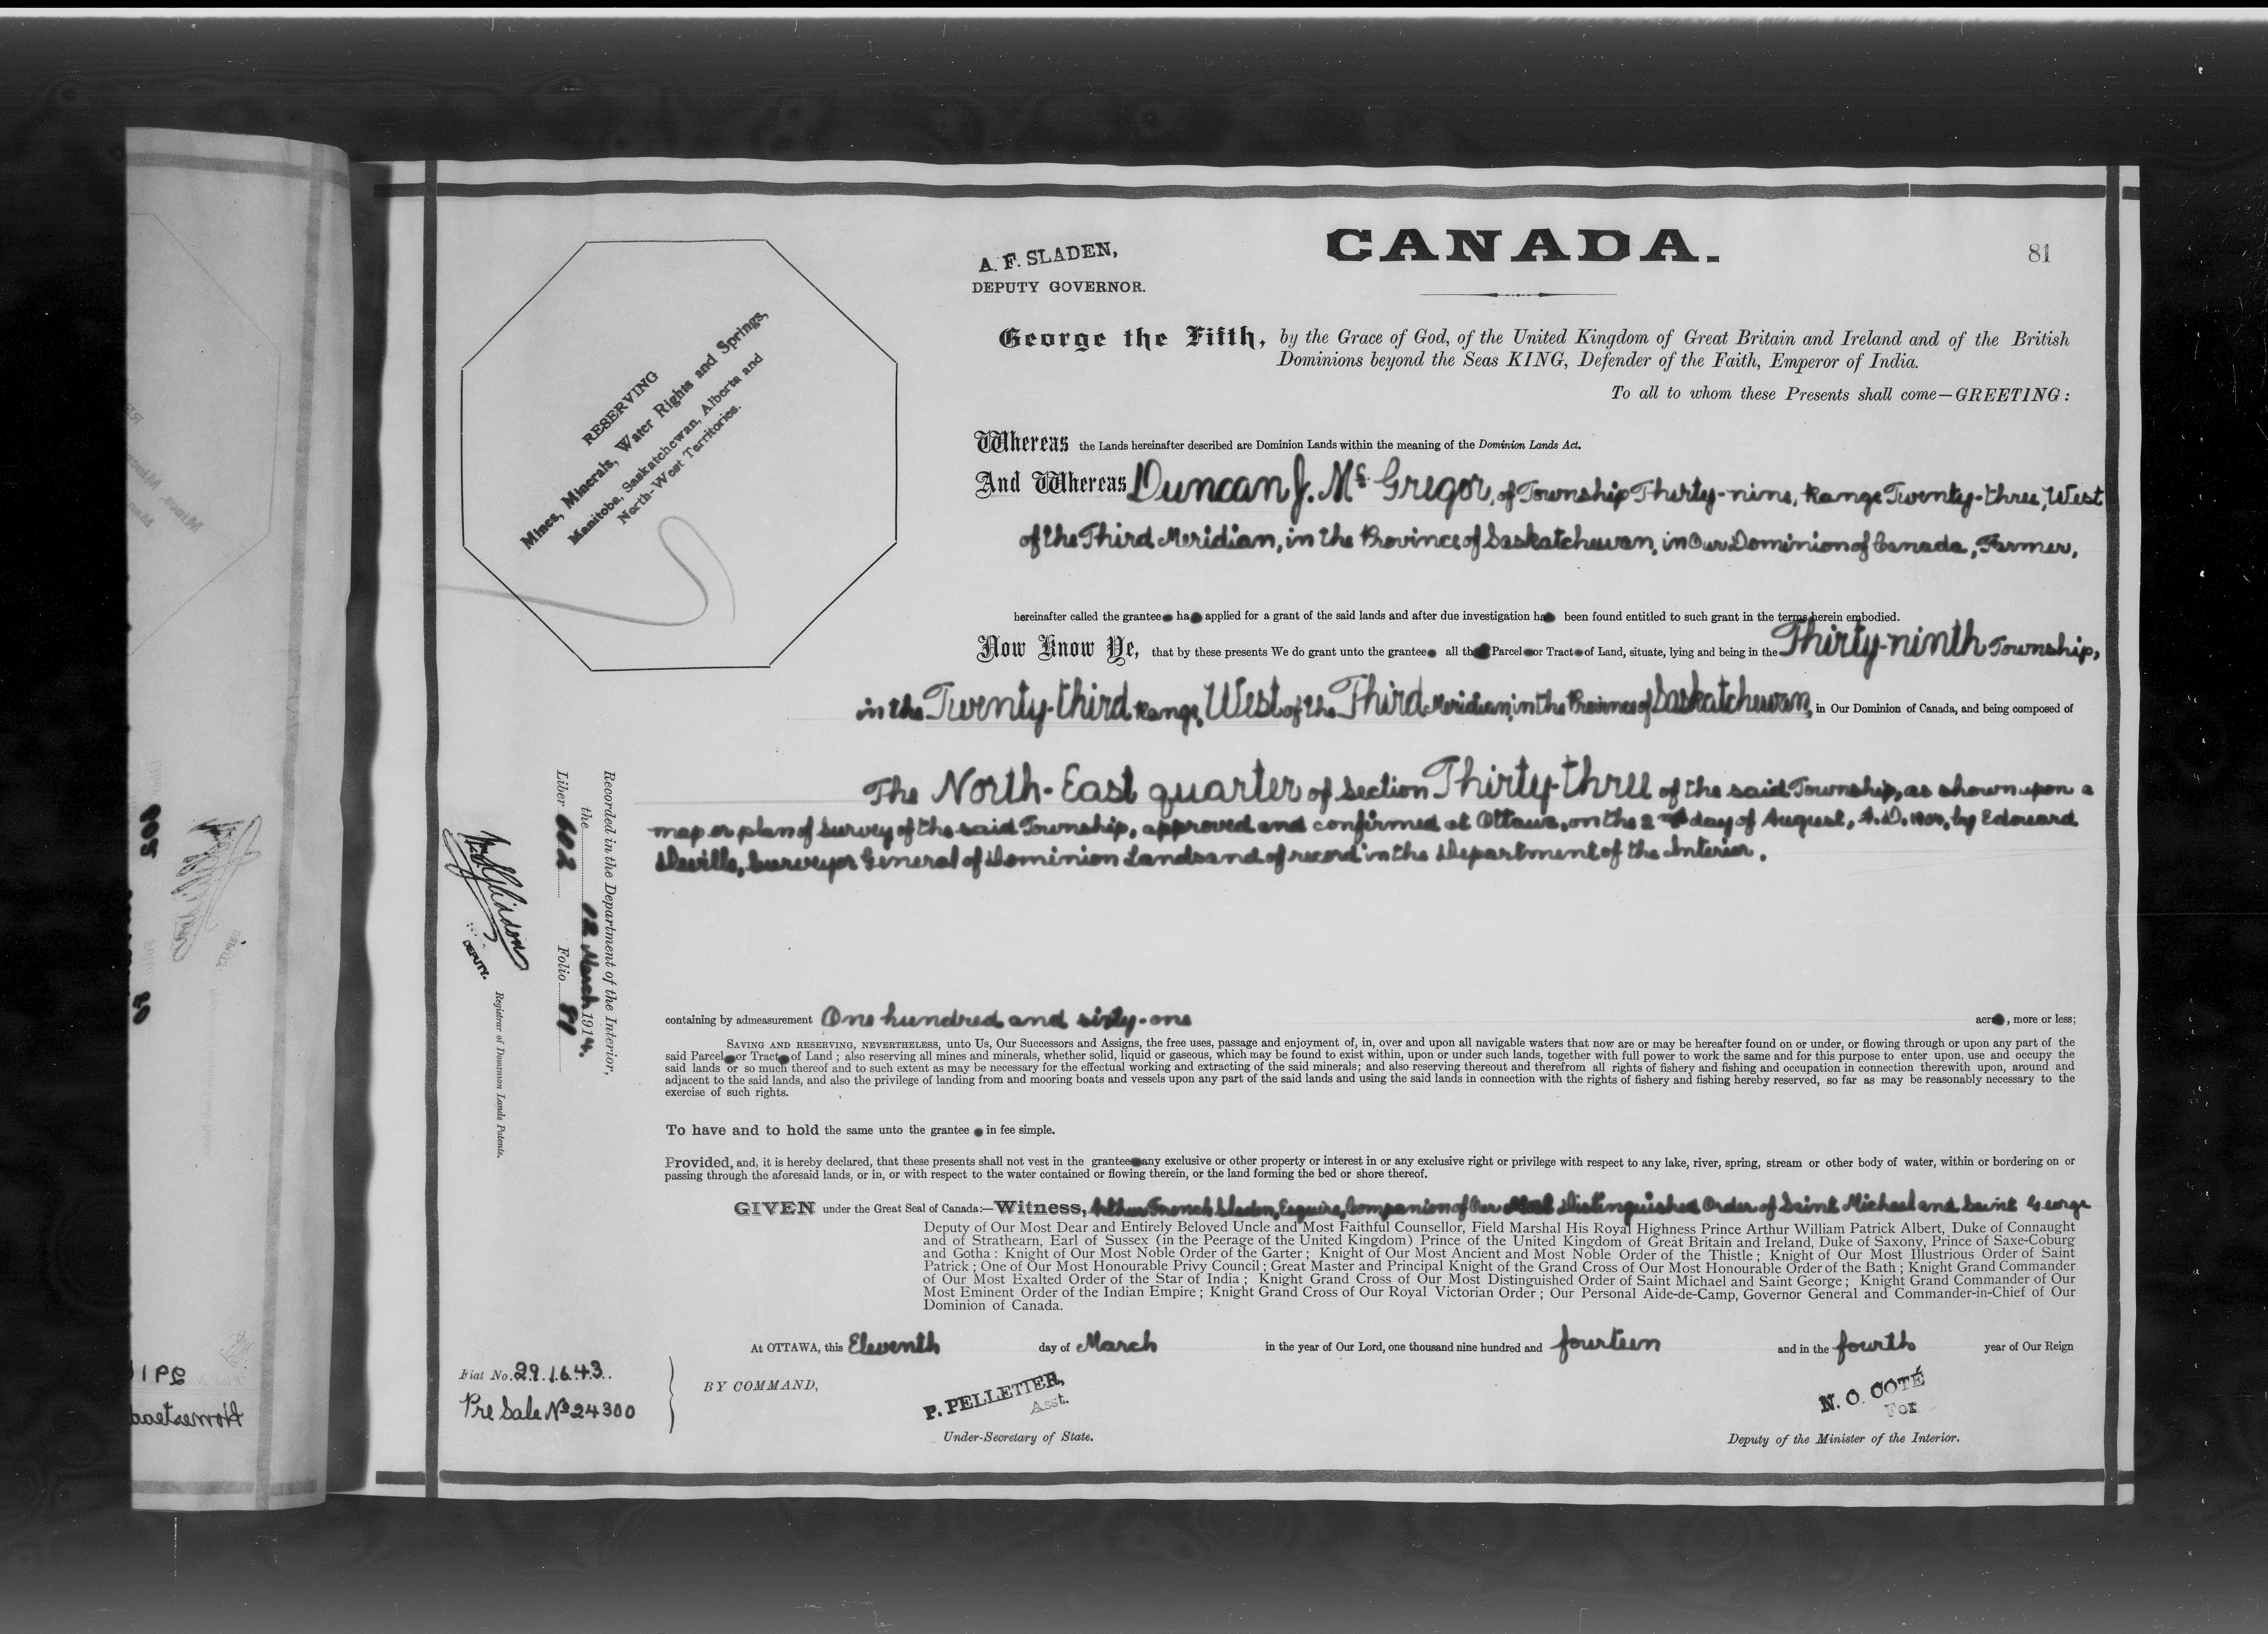 CANADA.
81
A. F. SLADEN,
DEPUTY GOVERNOR.
George the Fifth, by the Grace of God, of the United Kingdom of Great Britain and Ireland and of the British
Dominions beyond the Seas KING, Defender of the Faith, Emperor of India.
To all to whom these Presents shall come—GREETING:
RESERVING
Mines, Minerals, Water Rights and Springs,
Manitoba, Saskatchewan, Alberta and
North-West Territories.
Whereas the Lands hereinafter described are Dominion Lands within the meaning of the Dominion Lands Act.
And Whereas Duncan J. McGregor, of Township Thirty-nine, Range Twenty-three, West
of the Third Meridian, in the Province of Saskatchewan, in Our Dominion of Canada, Farmer,
hereinafter called the grantee ha applied for a grant of the said lands and after due investigation ha been found entitled to such grant in the terms herein embodied.
Now Know Ye, that by these presents We do grant unto the grantee all th Parcel or Tract of Land, situate, lying and being in the Thirty-ninth Township,
in the Twenty-third Range, West of the Third Meridian, in the Province of Saskatchewan, in Our Dominion of Canada, and being composed of
The North-East quarter of Section Thirty-three of the said Township, as shown upon a
map or plan of survey of the said Township, approved and confirmed at Ottawa, on the 2nd day of August, A.D. by Edouard
Deville, Surveyor General of Dominion Lands and of record in the Department of the Interior.
Recorded in the Department of the Interior,
the 12 March 1914.
Liber 602 Folio 81
DEPUTY.
Registrar of Dominion Lands Patents.
containing by admeasurement One hundred and sixty-one acr , more or less;
SAVING AND RESERVING, NEVERTHELESS, unto Us, Our Successors and Assigns, the free uses, passage and enjoyment of, in, over and upon all navigable waters that now are or may be hereafter found on or under, or flowing through or upon any part of the
said Parcel or Tract of Land; also reserving all mines and minerals, whether solid, liquid or gaseous, which may be found to exist within, upon or under such lands, together with full power to work the same and for this purpose to enter upon, use and occupy the
said lands or so much thereof and to such extent as may be necessary for the effectual working and extracting of the said minerals; and also reserving thereout and therefrom all rights of fishery and fishing and occupation in connection therewith upon, around and
adjacent to the said lands, and also the privilege of landing from and mooring boats and vessels upon any part of the said lands and using the said lands in connection with the rights of fishery and fishing hereby reserved, so far as may be reasonably necessary to the
exercise of such rights.
To have and to hold the same unto the grantee in fee simple.
Provided, and, it is hereby declared, that these presents shall not vest in the grantee any exclusive or other property or interest in or any exclusive right or privilege with respect to any lake, river, spring, stream or other body of water, within or bordering on or
passing through the aforesaid lands, or in, or with respect to the water contained or flowing therein, or the land forming the bed or shore thereof.
GIVEN under the Great Seal of Canada:—Witness, Arthur French Sladen, Esquire, Companion of Our Most Distinguished Order of Saint Michael and Saint George
Deputy of Our Most Dear and Entirely Beloved Uncle and Most Faithful Counsellor, Field Marshal His Royal Highness Prince Arthur William Patrick Albert, Duke of Connaught
and of Strathearn, Earl of Sussex (in the Peerage of the United Kingdom) Prince of the United Kingdom of Great Britain and Ireland, Duke of Saxony, Prince of Saxe-Coburg
and Gotha: Knight of Our Most Noble Order of the Garter; Knight of Our Most Ancient and Most Noble Order of the Thistle; Knight of Our Most Illustrious Order of Saint
Patrick; One of Our Most Honourable Privy Council; Great Master and Principal Knight of the Grand Cross of Our Most Honourable Order of the Bath; Knight Grand Commander
of Our Most Exalted Order of the Star of India; Knight Grand Cross of Our Most Distinguished Order of Saint Michael and Saint George; Knight Grand Commander of Our
Most Eminent Order of the Indian Empire; Knight Grand Cross of Our Royal Victorian Order; Our Personal Aide-de-Camp, Governor General and Commander-in-Chief of Our
Dominion of Canada.
At OTTAWA, this Eleventh day of March in the year of Our Lord, one thousand nine hundred and fourteen and in the fourth year of Our Reign
Fiat No. 291643
Pre Sale No 24300
BY COMMAND,
P. PELLETIER,
Asst.
Under-Secretary of State.
N. O. COTÉ
For
Deputy of the Minister of the Interior.